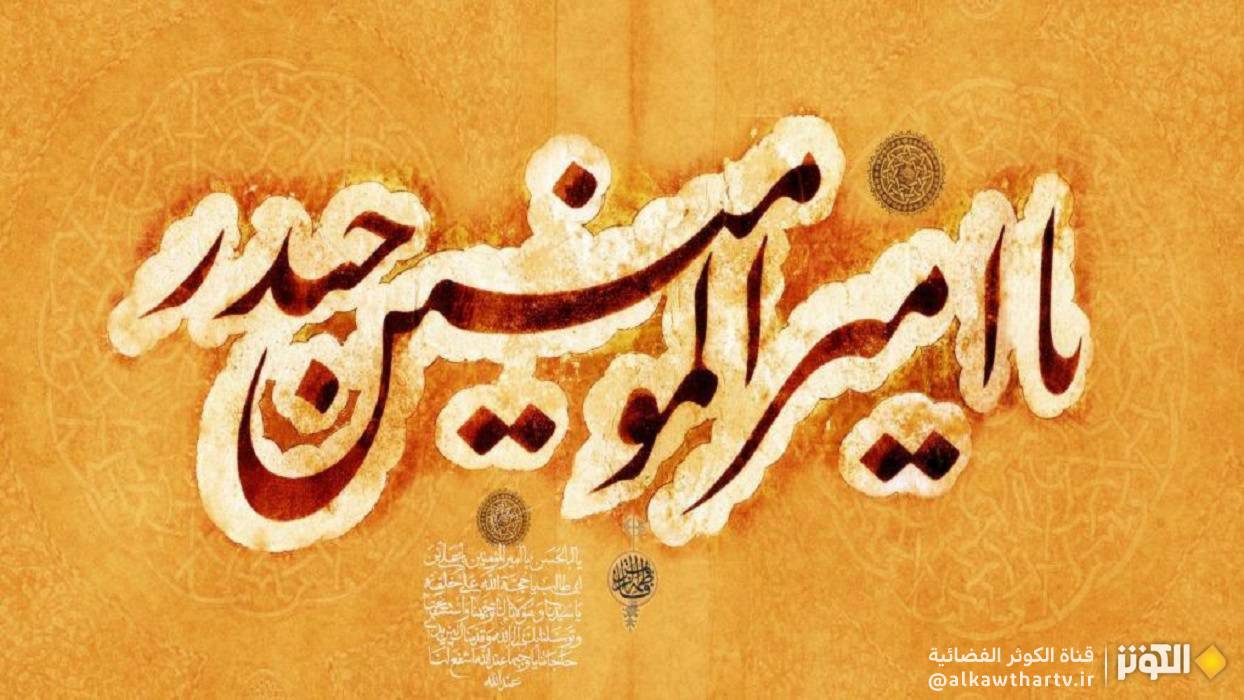 یا امیرالمومنین حیدر
یا ابا الحسن یا امیر المؤمنین یا علی بن
ابی طالب یا حجة الله علی خلقه
یا سیدنا و مولانا انا توجهنا و استشفعنا
و توسلنا بک الی الله و قدمناک بین یدی
حاجاتنا یا وجیها عند الله اشفع لنا
عند الله
الكوثر
قناة الكوثر الفضائية
@alkawthartv.ir